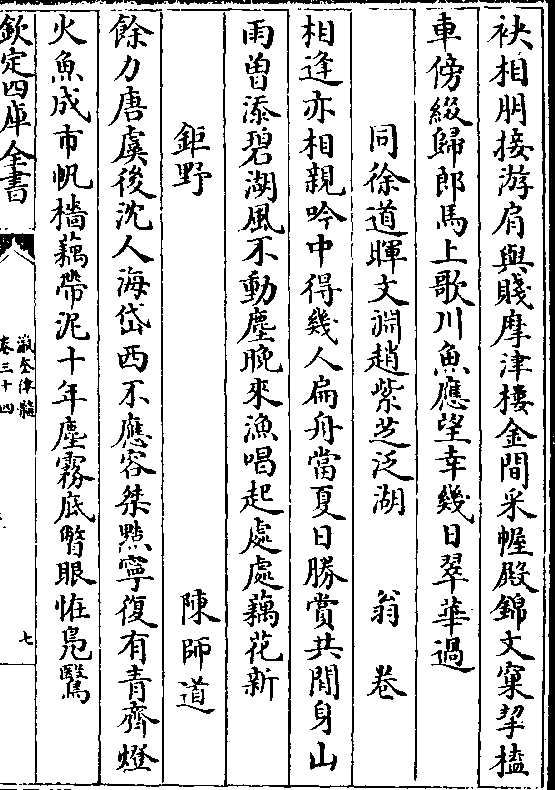 袂相朋接游肩與賤摩津樓金間采幄殿錦文窠挐榼
車傍綴歸郎馬上歌川魚應望幸幾日翠華過
同徐道暉文淵趙紫芝泛湖 翁卷
相逢亦相親吟中得幾人扁舟當夏日勝賞共閒身山
雨曽添碧湖風不動塵晚來漁唱起處處藕花新
鉅野 陳師道
餘力唐虞後沈人海岱西不應容桀黠寧復有青齊燈
火魚成市帆檣藕帶泥十年塵霧底瞥眼怪鳬鷖
欽定四庫全書
瀛奎律髓
卷三十四
七